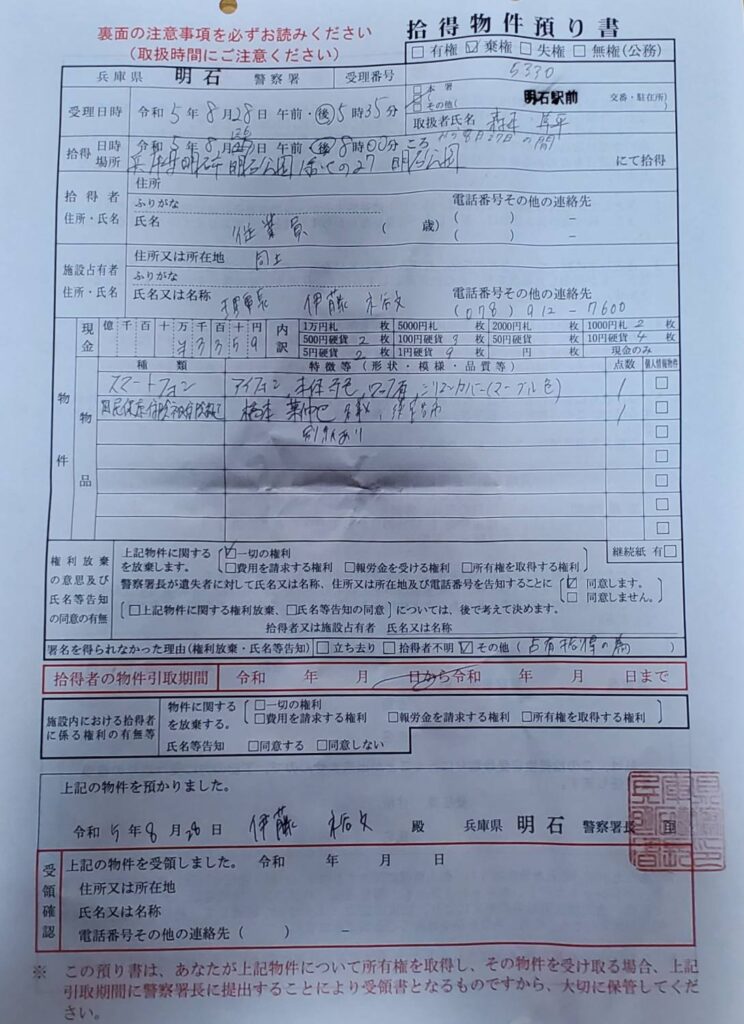 裏面の注意事項を必ずお読みください
(取扱時間にご注意ください)
拾得物件預り書
□有権 ☑棄権 □失権 □無権(公務)
兵庫県 明石 警察署
受理番号 5330
受理日時 令和5年8月28日 午前・後5時35分
□本署
□その他( 明石駅前 交番・駐在所)
取扱者氏名
拾得 日時 場所
令和5年8月 日 午前・後8時00分ころ
から8月27日の間
兵庫県明石市明石公園 27 明石公園 にて拾得
拾得者 住所・氏名
住所
ふりがな
氏名 従業員 ( 歳)
電話番号その他の連絡先
( ) −
( ) −
施設占有者 住所・氏名
住所又は所在地 同上
ふりがな
氏名又は名称 理事長 伊藤 裕文
電話番号その他の連絡先
(078) 912 − 7600
現金
億 千 百 十 万 千 百 十 円
3 3 5 9
内訳
1万円札 枚 5000円札 枚 2000円札 枚 1000円札 2 枚
500円硬貨 2 枚 100円硬貨 3 枚 50円硬貨 枚 10円硬貨 4 枚
5円硬貨 2 枚 1円硬貨 9 枚 円 枚 現金のみ
物件
物品
種類 特徴等(形状・模様・品質等) 点数 個人情報物件
スマートフォン アイフォン、本体 色、 有、シリコンカバー(マーブル色) 1 □
国民健康保険被保険者証 1 □
□
□
□
□
□
権利放棄の意思及び氏名等告知の同意の有無
上記物件に関する ☑一切の権利
を放棄します。 □費用を請求する権利 □報労金を受ける権利 □所有権を取得する権利
継続紙 有□
警察署長が遺失者に対して氏名又は名称、住所又は所在地及び電話番号を告知することに ☑ 同意します。
□ 同意しません。
〔□上記物件に関する権利放棄、□氏名等告知の同意〕については、後で考えて決めます。
拾得者又は施設占有者 氏名又は名称
署名を得られなかった理由(権利放棄・氏名等告知) □立ち去り □拾得者不明 ☑その他(占有拾得の為)
拾得者の物件引取期間 令和 年 月 日から令和 年 月 日まで
施設内における拾得者に係る権利の有無等
物件に関する □一切の権利
を放棄する。 □費用を請求する権利 □報労金を請求する権利 □所有権を取得する権利
氏名等告知 □同意する □同意しない
上記の物件を預かりました。
令和5年8月28日 伊藤 裕文 殿 兵庫県 明石 警察署長
受領確認
上記の物件を受領しました。 令和 年 月 日
住所又は所在地
氏名又は名称
電話番号その他の連絡先( ) −
※ この預り書は、あなたが上記物件について所有権を取得し、その物件を受け取る場合、上記
引取期間に警察署長に提出することにより受領書となるものですから、大切に保管してくだ
さい。